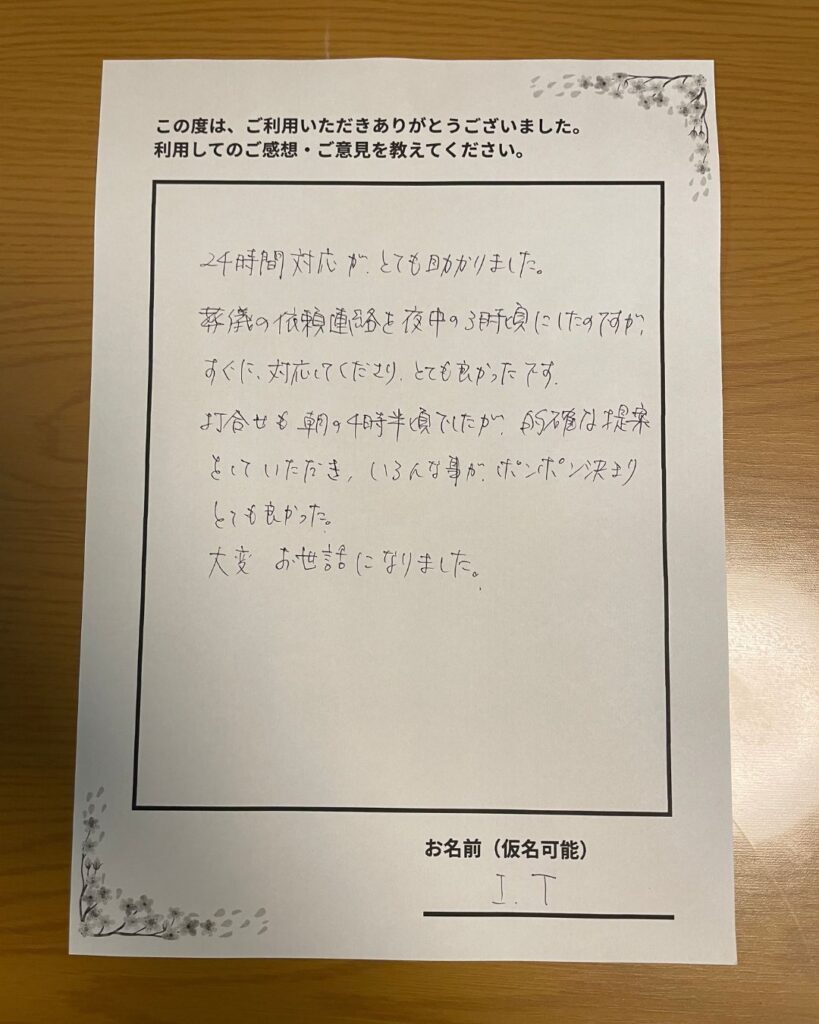 この度は、ご利用いただきありがとうございました。
利用してのご感想・ご意見を教えてください。
24時間対応が、とても助かりました。
葬儀の依頼連絡を夜中の3時頃にしたのですが、
すぐに、対応してくださり、とても良かったです。
打合せも朝の4時半頃でしたが、的確な提案
をしていただき、いろんな事が、ポンポン決まり
とても良かった。
大変 お世話になりました。
お名前（仮名可能）
I.T